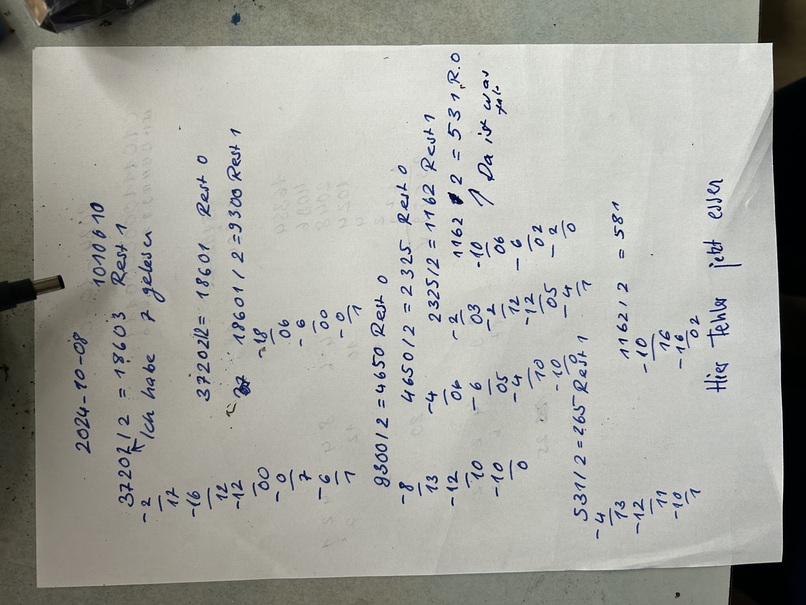 2024-10-08
1010610
37202/2 = 18603 Rest 1
Ich habe 7 gelesen
-2
17
-16
12
-12
00
-0
7
-6
1
37202/2 = 18601 Rest 0
37 18601/2 = 9300 Rest 1
-18
06
-6
00
-0
1
9300/2 = 4650 Rest 0
-8
13
-12
10
-10
0
4650/2 = 2325 Rest 0
-4
06
-6
05
-4
10
-10
0
2325/2 = 1162 Rest 1
-2
03
-2
12
-12
05
-4
1
1162 / 2 = 531 R.0
-10
06
-6
02
-2
0
Da ist was
531/2 = 265 Rest 1
-4
13
-12
11
-10
1
1162/2 = 581
-10
16
-16
02
Hier Fehler jetzt essen